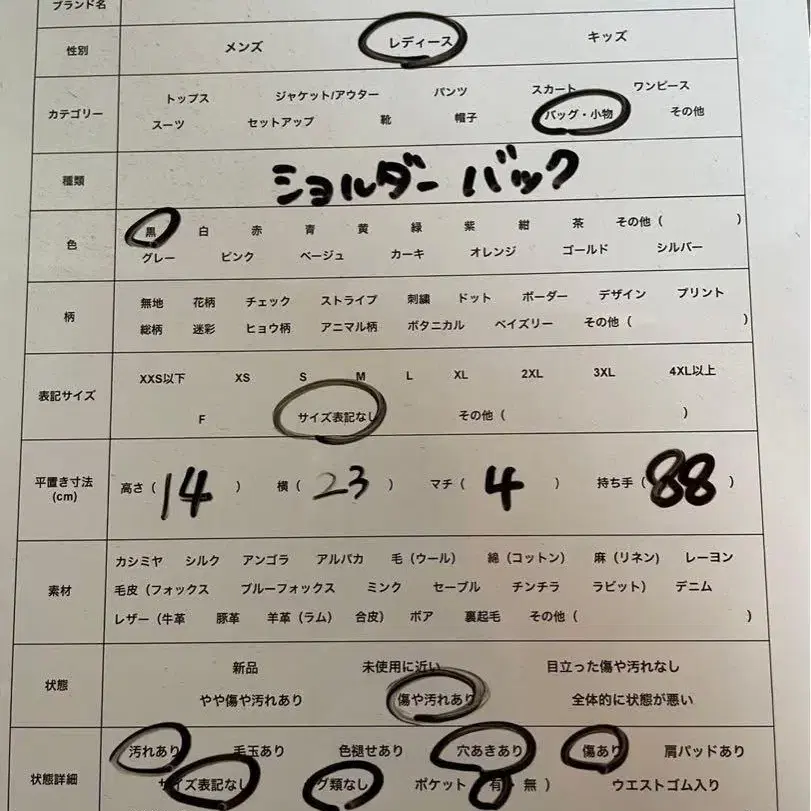 ブランド名
性別 メンズ レディース キッズ
トップス ジャケット/アウター パンツ スカート ワンピース
カテゴリー
スーツ セットアップ 靴 帽子 バッグ・小物 その他
種類 ショルダー バック
黒 白 赤 青 黄 緑 紫 紺 茶 その他( )
色
グレー ピンク ベージュ カーキ オレンジ ゴールド シルバー
無地 花柄 チェック ストライプ 刺繍 ドット ボーダー デザイン プリント
柄
総柄 迷彩 ヒョウ柄 アニマル柄 ボタニカル ペイズリー その他( )
XXS以下 XS S M L XL 2XL 3XL 4XL以上
表記サイズ
F サイズ表記なし その他( )
平置き寸法
(cm)
高さ( 14 ) 横( 23 ) マチ( 4 ) 持ち手( 88 )
カシミヤ シルク アンゴラ アルパカ 毛(ウール) 綿(コットン) 麻(リネン) レーヨン
素材
毛皮(フォックス ブルーフォックス ミンク セーブル チンチラ ラビット) デニム
レザー(牛革 豚革 羊革(ラム) 合皮) ボア 裏起毛 その他( )
新品 未使用に近い 目立った傷や汚れなし
状態
やや傷や汚れあり 傷や汚れあり 全体的に状態が悪い
汚れあり 毛玉あり 色褪せあり 穴あきあり 傷あり 肩パッドあり
状態詳細
サイズ表記なし グ類なし ポケット 有 無 ) ウエストゴム入り